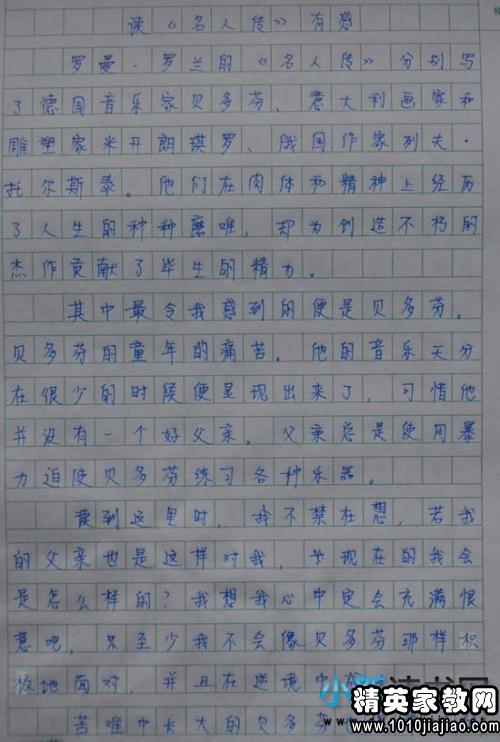 读《名人传》有感
罗曼·罗兰的《名人传》分别写
了德国音乐家贝多芬、意大利画家和
雕塑家米开朗琪罗、俄国作家列夫·
托尔斯泰。他们在肉体和精神上经历
了人生的种种磨难,却为创造不朽的
杰作贡献了毕生的精力。
其中最令我感到的便是贝多芬。
贝多芬的童年的痛苦。他的音乐天分
在很少的时候便呈现出来了,可惜他
并没有一个好父亲。父亲总是使用暴
力迫使贝多芬练习各种乐器。
读到这里时,我不禁在想,若我
的父亲也是这样对我,长现在的我会
是怎么样的?我想我心中定会充满恨
意吧,只至少我不会像贝多芬那样积
极地面对,并且在逆境中
苦难中长大的贝多芬
精英家教网
www.1010jiajiao.com